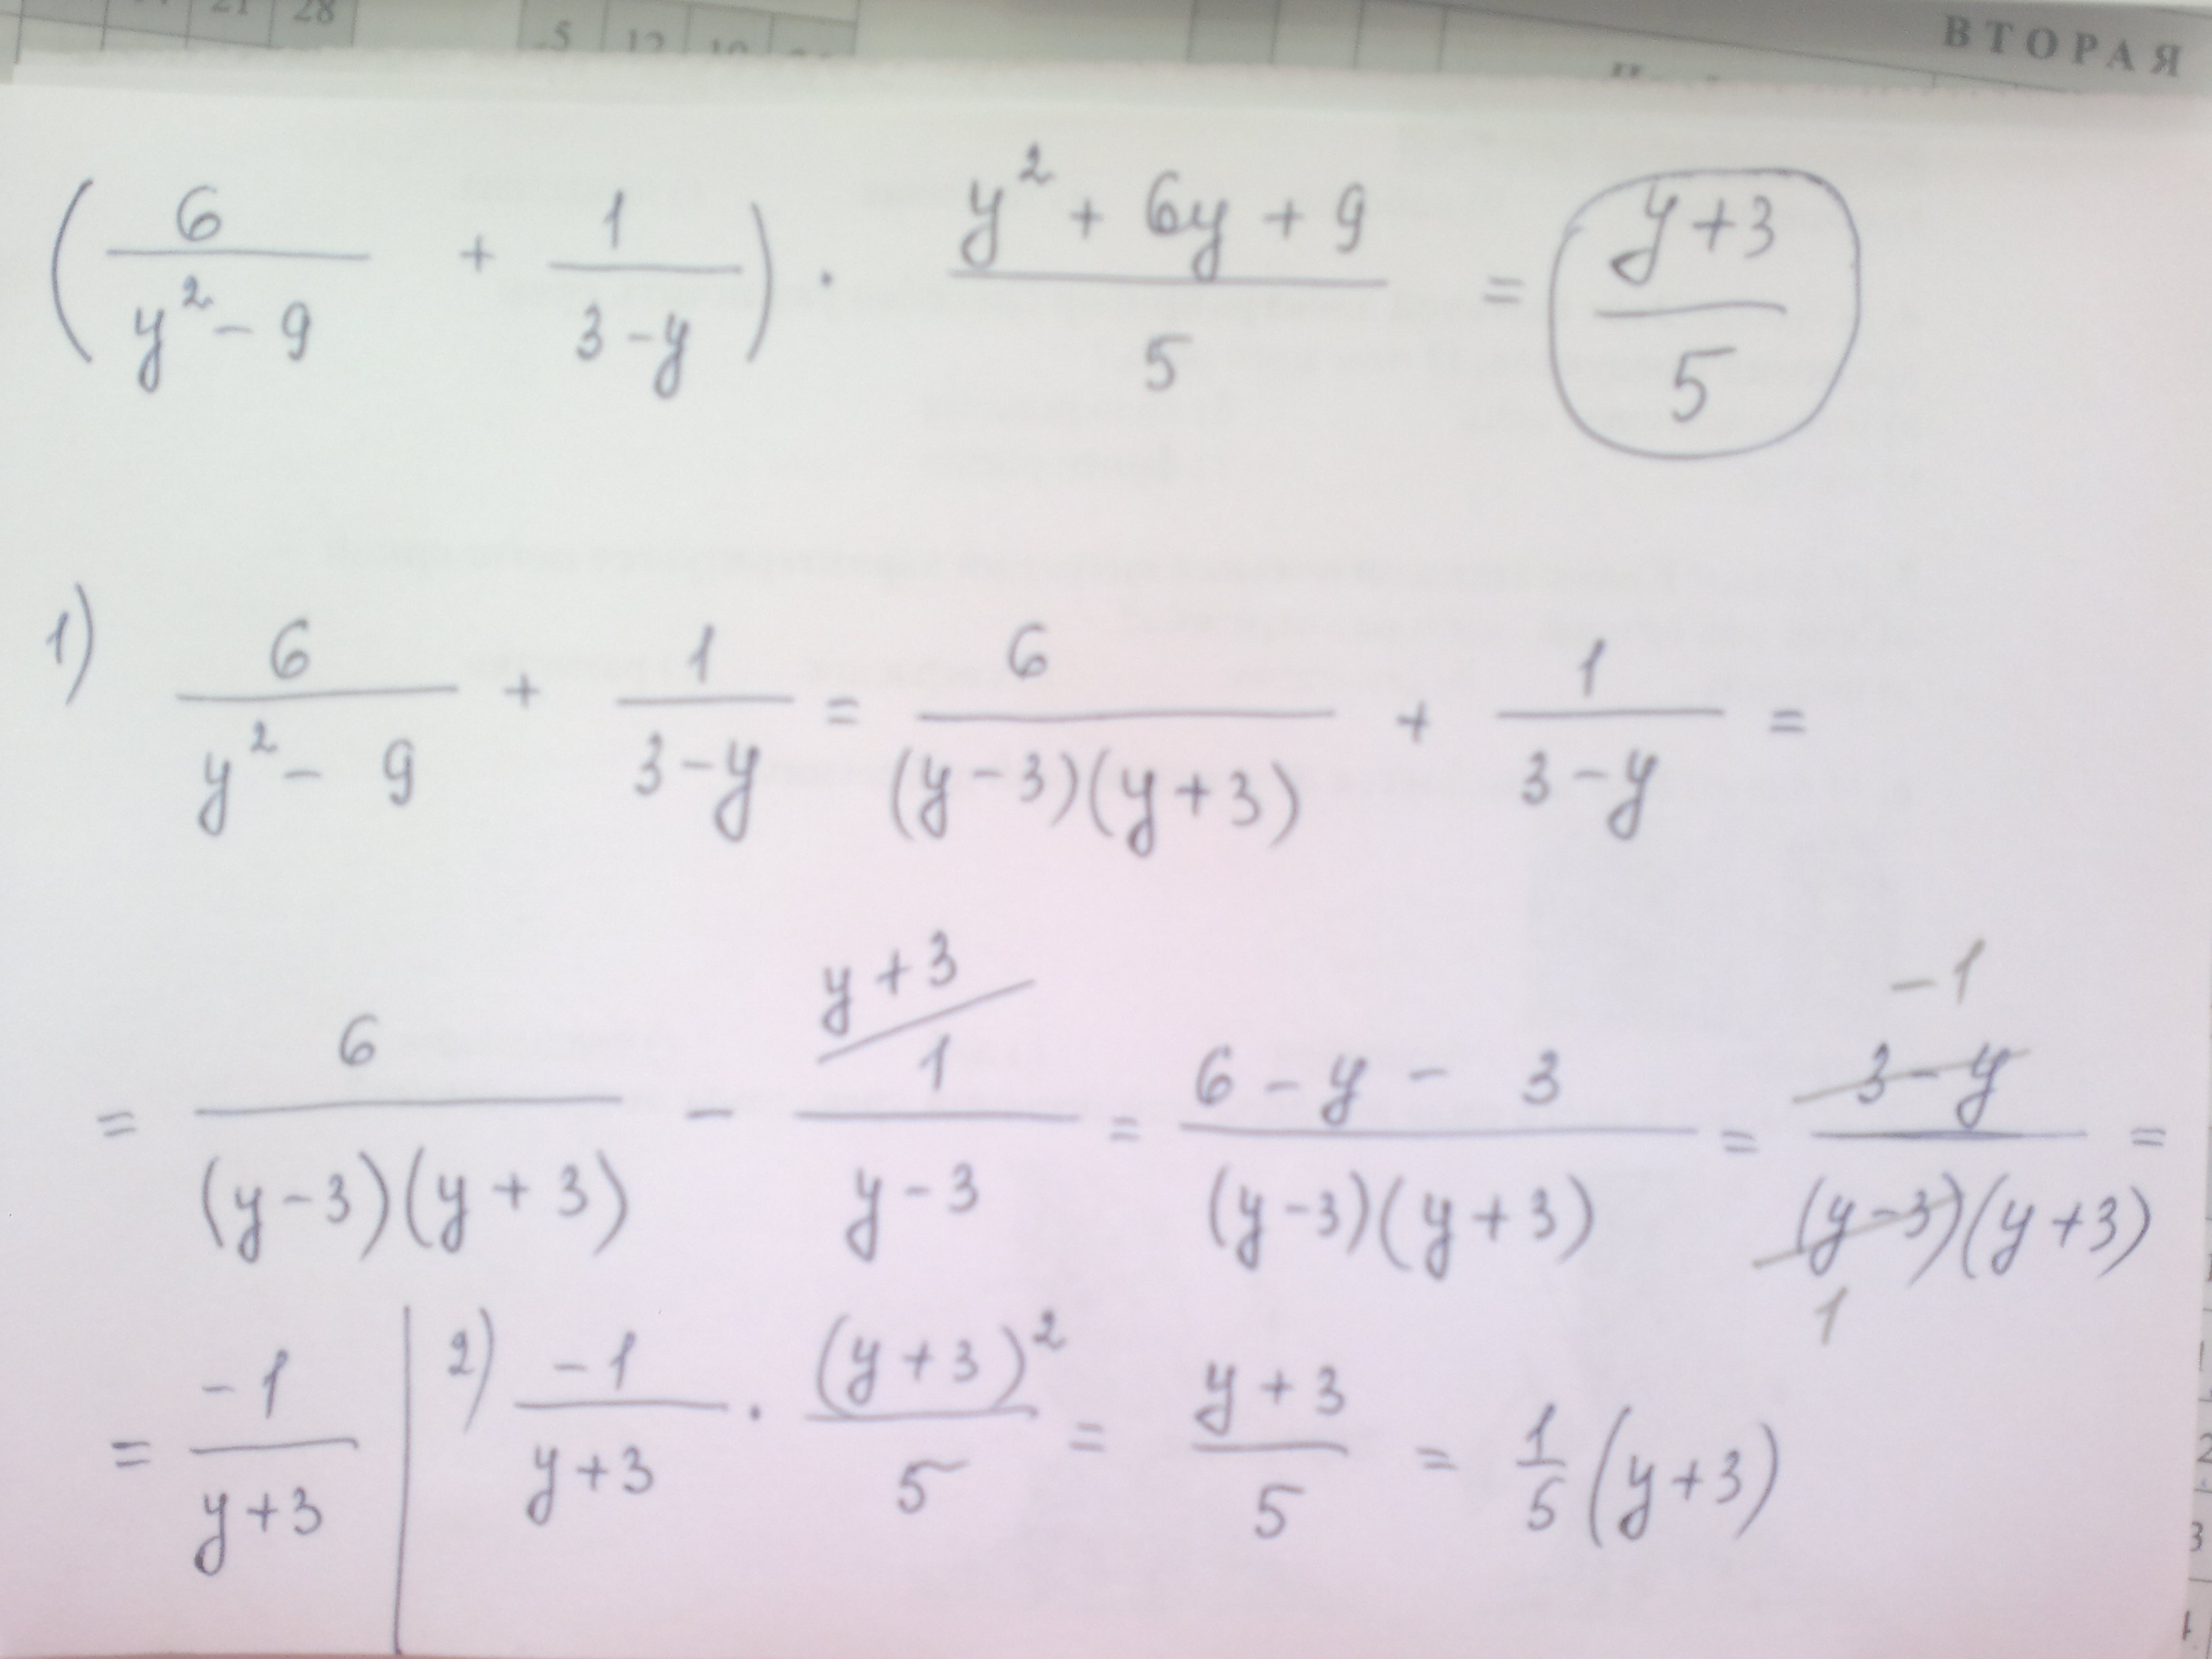 21 28
5 12 19
ВТОРАЯ
( 6/(y² - 9) + 1/(3 - y) ) · (y² + 6y + 9)/5 = (y + 3)/5
1) 6/(y² - 9) + 1/(3 - y) = 6/((y - 3)(y + 3)) + 1/(3 - y) =
= 6/((y - 3)(y + 3)) - 1/(y - 3) y + 3 = (6 - y - 3)/((y - 3)(y + 3)) = -1 (3 - y)/((y - 3)(y + 3)) 1 =
= -1/(y + 3) | 2) -1/(y + 3) · (y + 3)²/5 = (y + 3)/5 = 1/5 (y + 3)
2
3